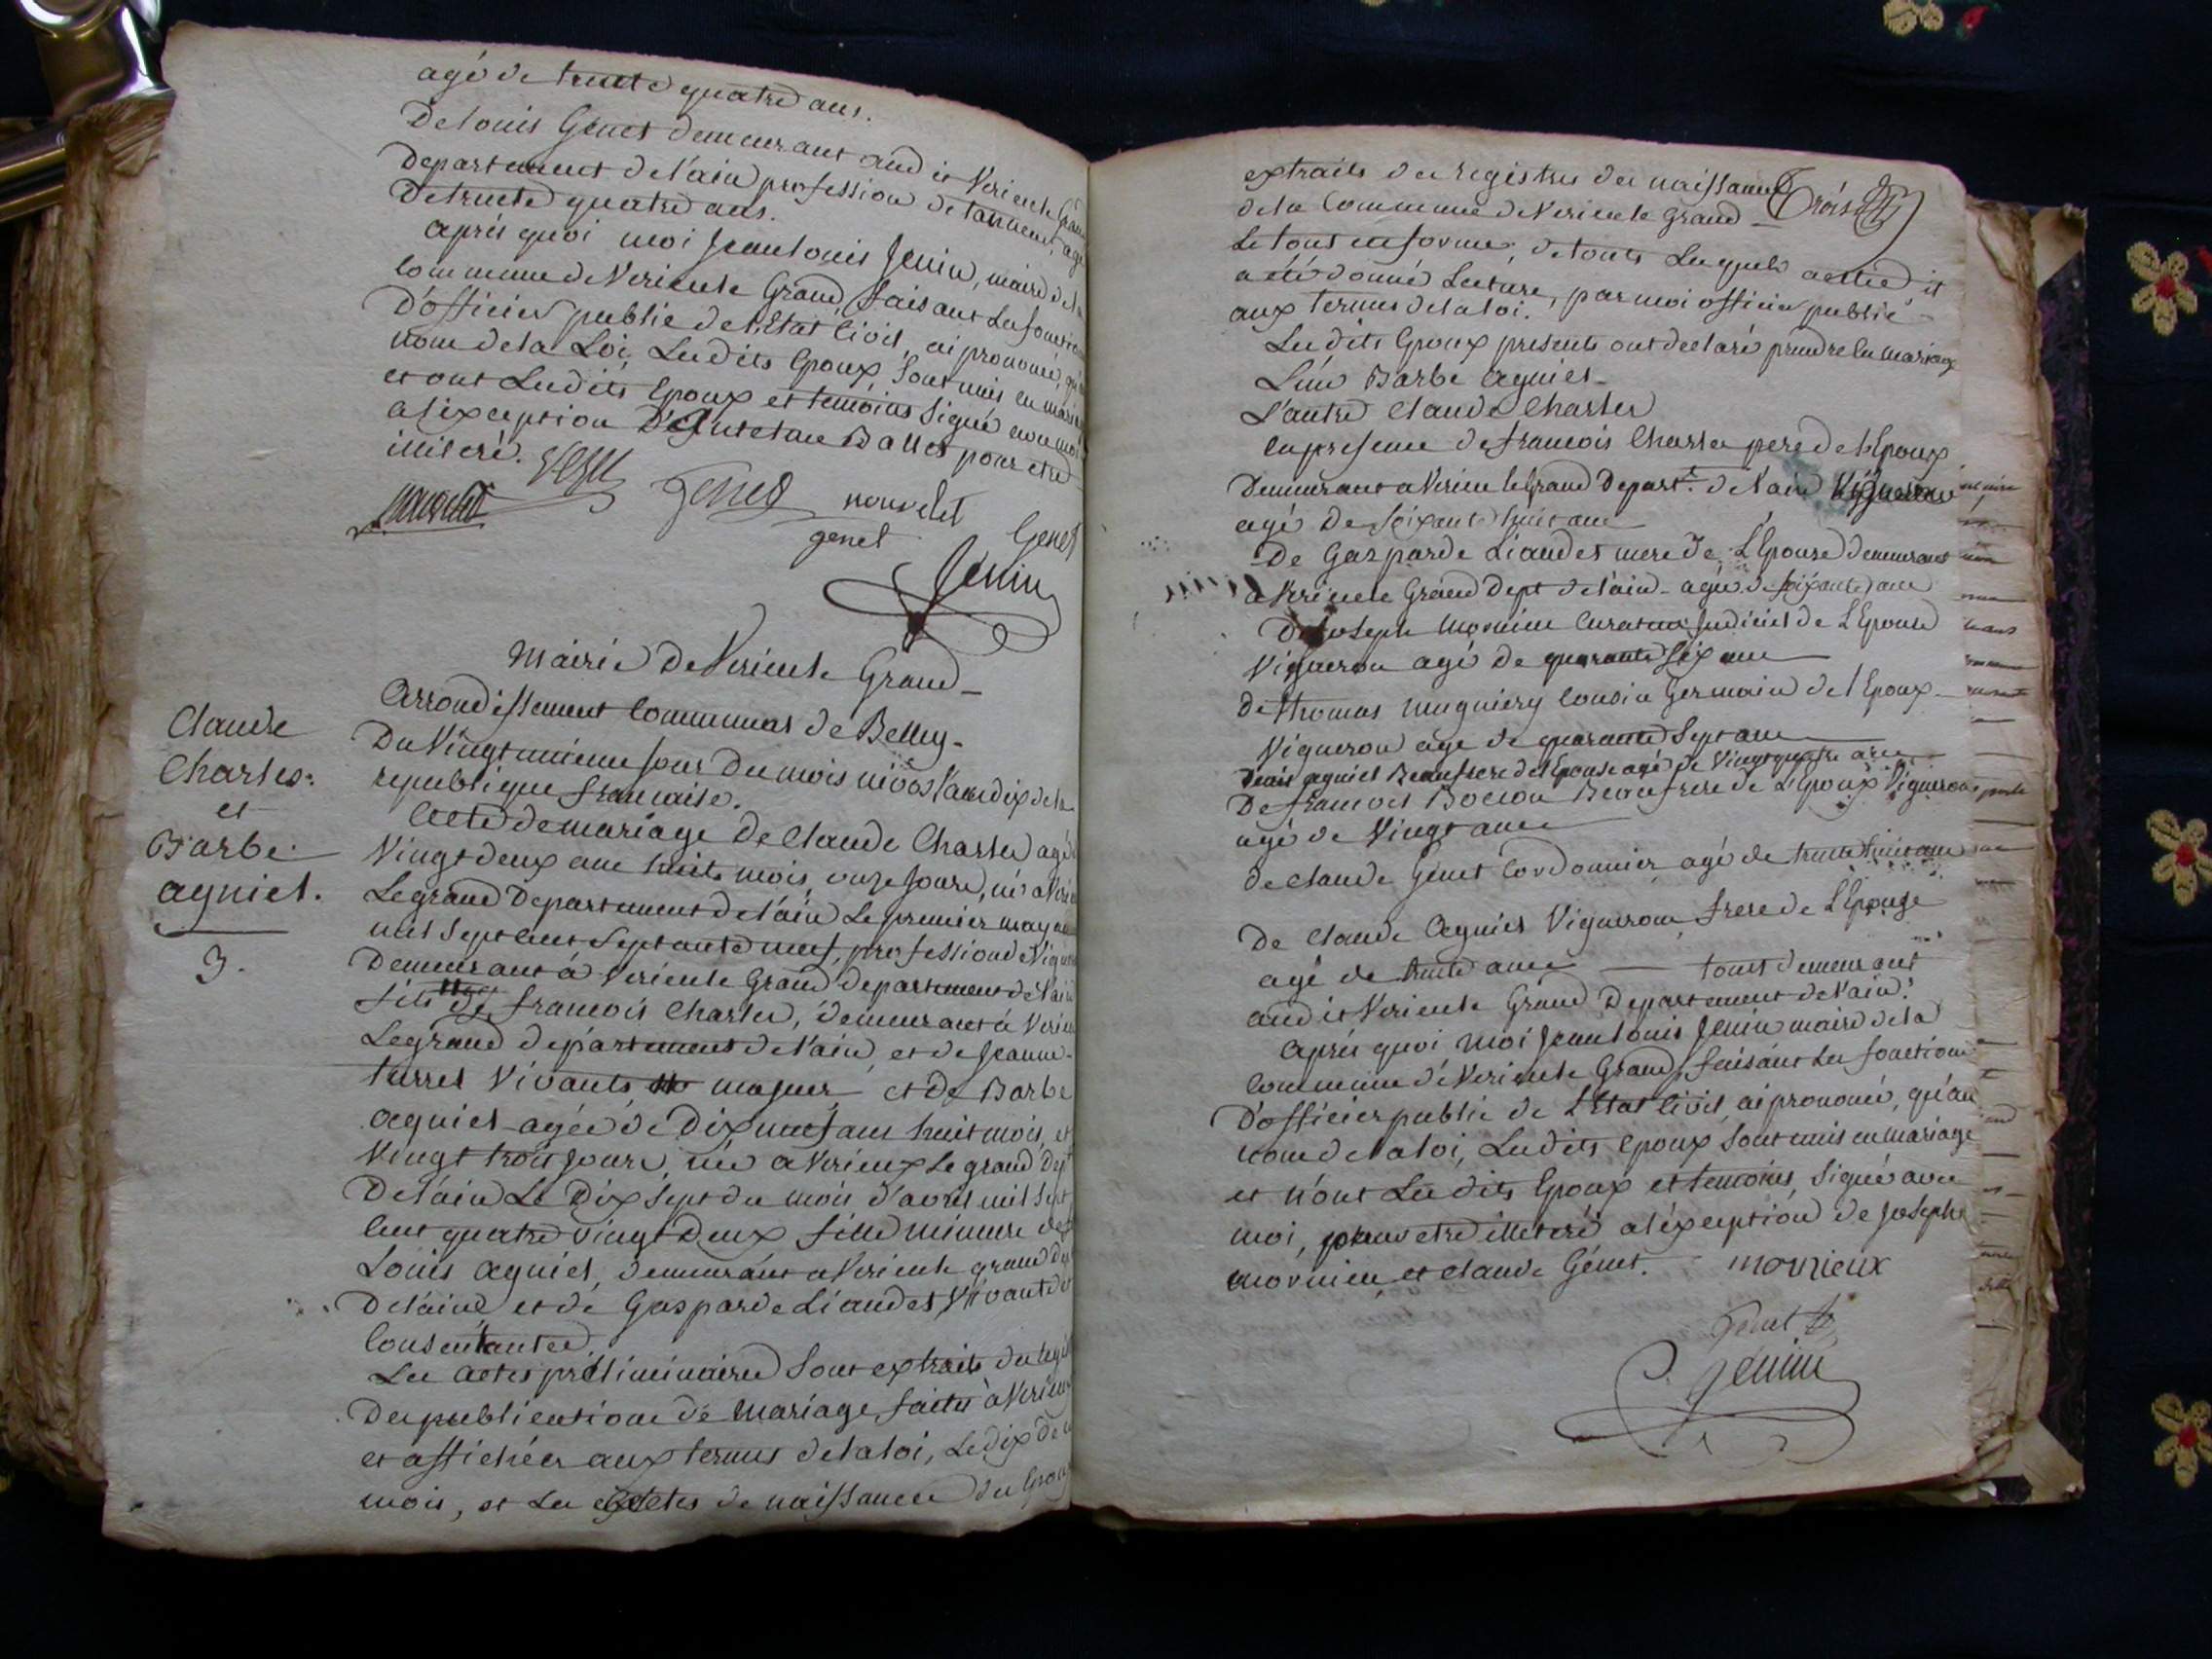 agé de trente quatre ans.
De louis Genet demeurant audit Verieu le Grand
Departement de l'ain profession de tanneur, agé
de trente quatre ans.
après quoi moi Jean louis Jenin, maire de la
Commune de Verieu le Grand, faisant les fonctions
D'officier public de l'Etat Civil, ai prononcé, qu'au
nom de la Loi, Lesdits Epoux sont unis en mariage
et ont Lesdits Epoux et temoins signé avec moi
a l'exception D' Ballet pour etre
illiteré.
Genet nouvelet
genet Genet
Jenin
Mairie De Verieu le Grand
Arrondissement Communal de Belley
Du Vingt unieme jour Du mois nivos l'an dix de la
republique francaise.
Claude
Charles
et
Barbe
agniel.
3.
Acte de mariage De Claude Charles agé de
Vingt deux ans huit mois onze jours, né a Verieu
Le grand Departement de l'ain Le premier may
mil sept cent septante neuf, profession de Vigneron
Demeurant à Verieu le Grand departement de l'ain
fils de francois Charles, demeurant à Verieu
Le grand département de l'ain, et de Jeanne
Vivants majeur et de Barbe
agniel agée de Dix neuf ans huit mois et
Vingt trois jours, née a Verieux Le grand Dept
De l'ain Le Dix sept du mois d'avril mil sept
cent quatre vingt Deux fille mineure de
Louis agniel, demeurant a Verieu le grand Dept
De l'ain et de Gasparde Liaudet Vivante et
Consentante
Les actes préliminaires sont extraits du registre
Des publications de mariage faites à Verieu
et affichées aux termes de la loi, Le dix de ce
mois, et Les actes de naissance des Epoux
extraits des registres des naissances Trois
de la Commune de Verieu le grand
Le tout en forme; de touts Lesquels actes il
a été donné Lecture, par moi officier public
aux termes de la loi.
Lesdits Epoux presents ont declaré prendre en mariage
L'un Barbe Agniel
L'autre Claude Charles
en presence de francois Charles pere de l'Epoux
Demeurant a Verieu le Grand Depart.t de l'ain Vigneron
agé De soixante huit ans
De Gasparde Liaudet mere de L'Epouse demeurant
a Verieu le Grand Dept de l'ain agée de soixante ans
De Joseph Mornieu Curateur judiciel de L'Epouse
Vigneron agé de quarante six ans
de thomas mugniery Cousin Germain de l'Epoux
Vigneron agé de quarante sept ans
Denis agniel Beaufrere de l'Epouse agé de Vingt quatre ans
De francois Bocion Beaufrere de L'Epoux Vigneron
agé de Vingt ans
de claude Genet Cordonnier agé de trente huit ans
De claude Agniel Vigneron, frere de L'Epouse
agé de trente ans touts demeurant
audit Verieu le Grand Departement de l'ain.
Après quoi moi Jean louis Jenin maire de la
Commune de Verieu le Grand, faisant les fonctions
D'officier public de L'Etat Civil, ai prononcé, qu'au
nom de la loi, Lesdits epoux sont unis en mariage
et n'ont Lesdits Epoux et temoins, signé avec
moi, pour etre illeteré a l'exception de Joseph
mornieu et claude Génet. mornieux
Genet
Jenin